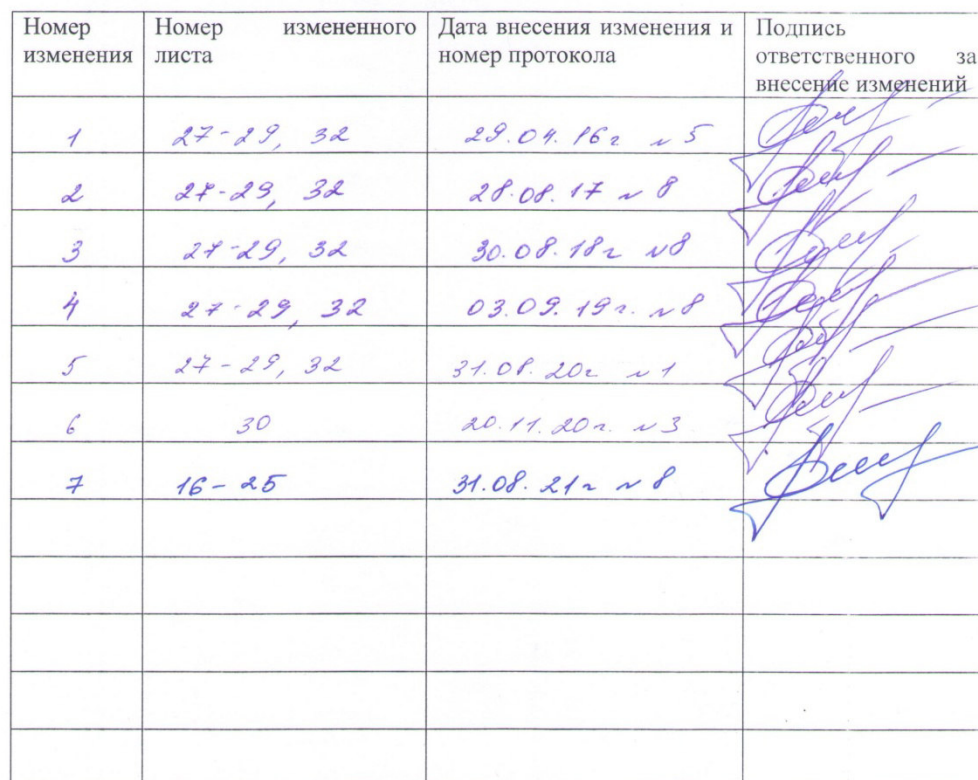 Номер изменения
Номер измененного листа
Дата внесения изменения и номер протокола
Подпись ответственного за внесение изменений
1 27-29, 32 29.04.16г №5
2 27-29, 32 28.08.17 №8
3 27-29, 32 30.08.18г №8
4 27-29, 32 03.09.19г. №8
5 27-29, 32 31.08.20г №1
6 30 20.11.20г. №3
7 16-25 31.08.21г №8